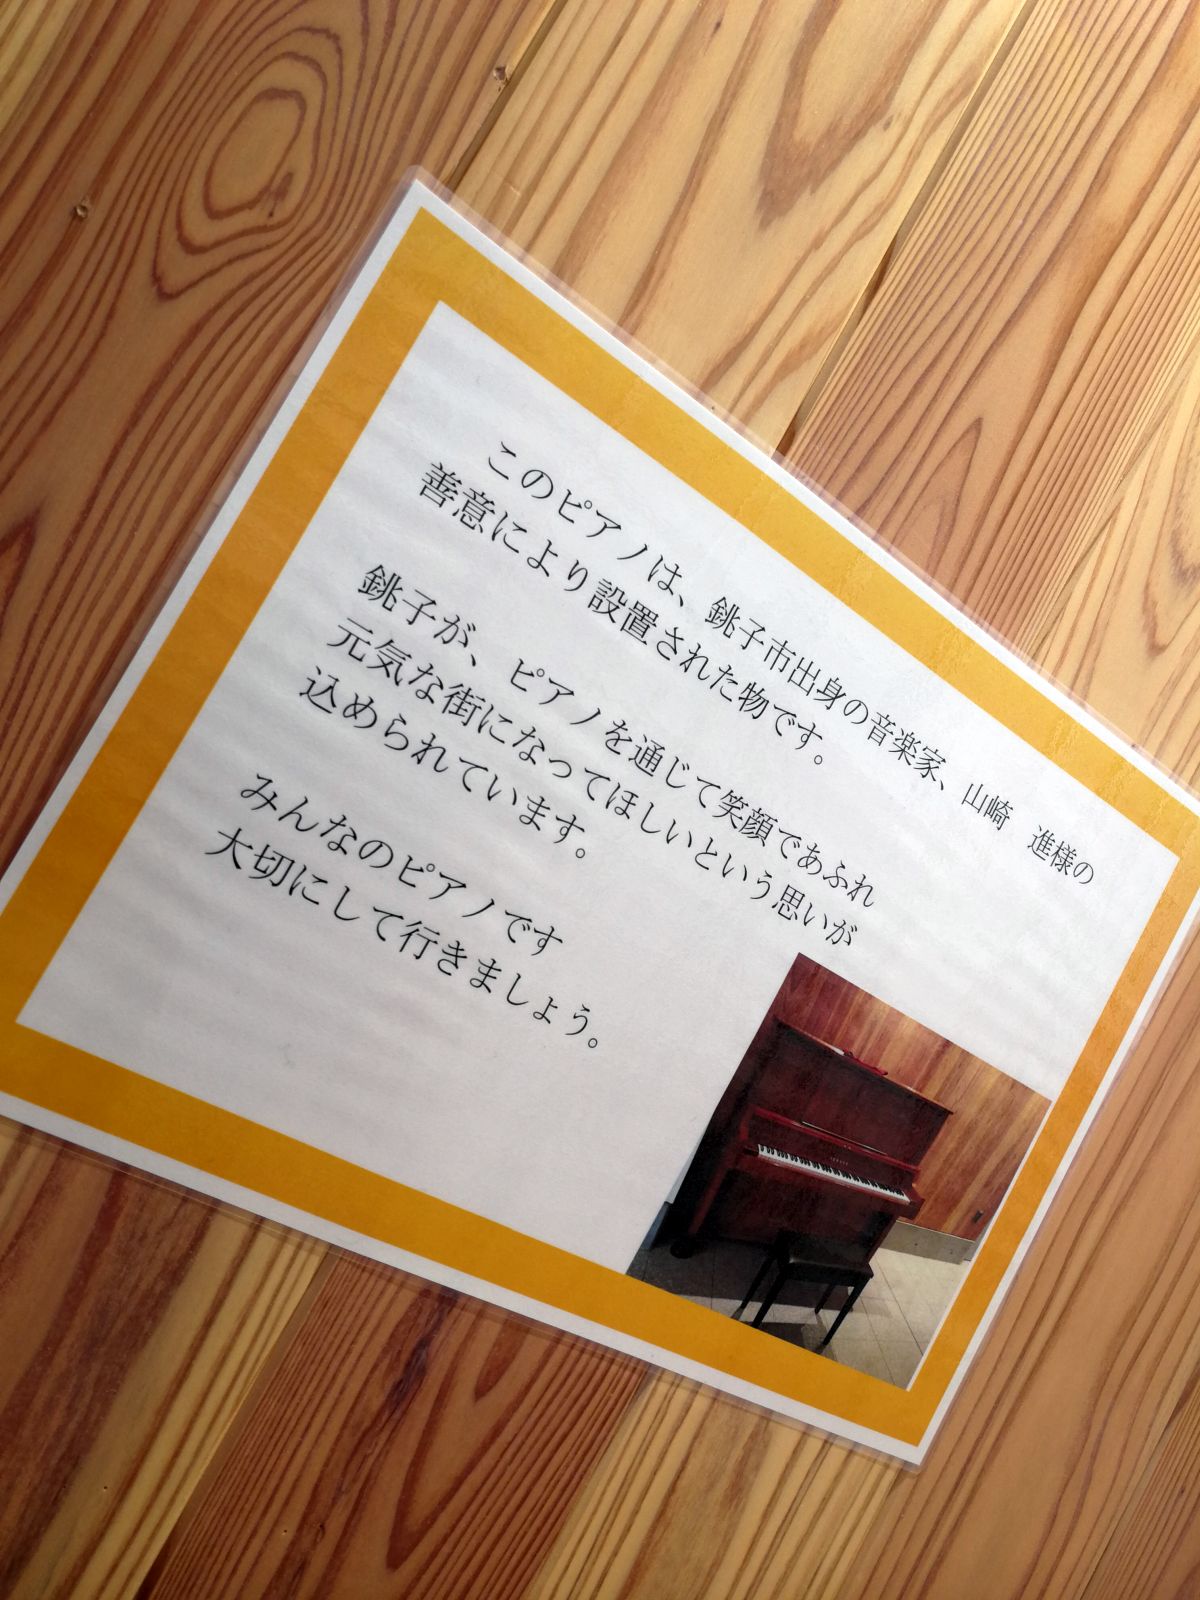 このピアノは、銚子市出身の音楽家、山崎　進様の
善意により設置された物です。
銚子が、ピアノを通じて笑顔であふれ
元気な街になってほしいという思いが
込められています。
みんなのピアノです
大切にして行きましょう。